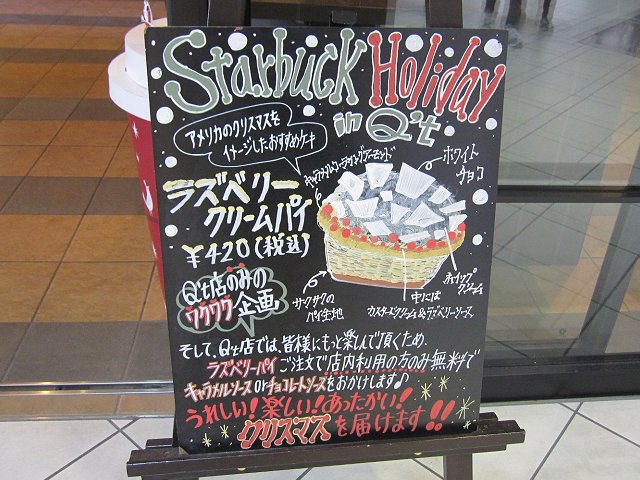 Starbuck Holiday
in Q't
アメリカのクリスマスを
イメージしたおすすめケーキ
ラズベリー
クリームパイ
¥420(税込)
ホワイト
チョコ
ホイップ
クリーム
サクサクの
パイ生地
中には
カスタードクリーム&ラズベリーソース。
Q't店のみの
ワクワク企画
そして、Q't店では、皆様にもっと楽しんで頂くため、
ラズベリーパイご注文で店内利用の方のみ無料で
キャラメルソースorチョコレートソースをおかけします♪
うれしい!楽しい!あったかい!
クリスマスを届けます!!